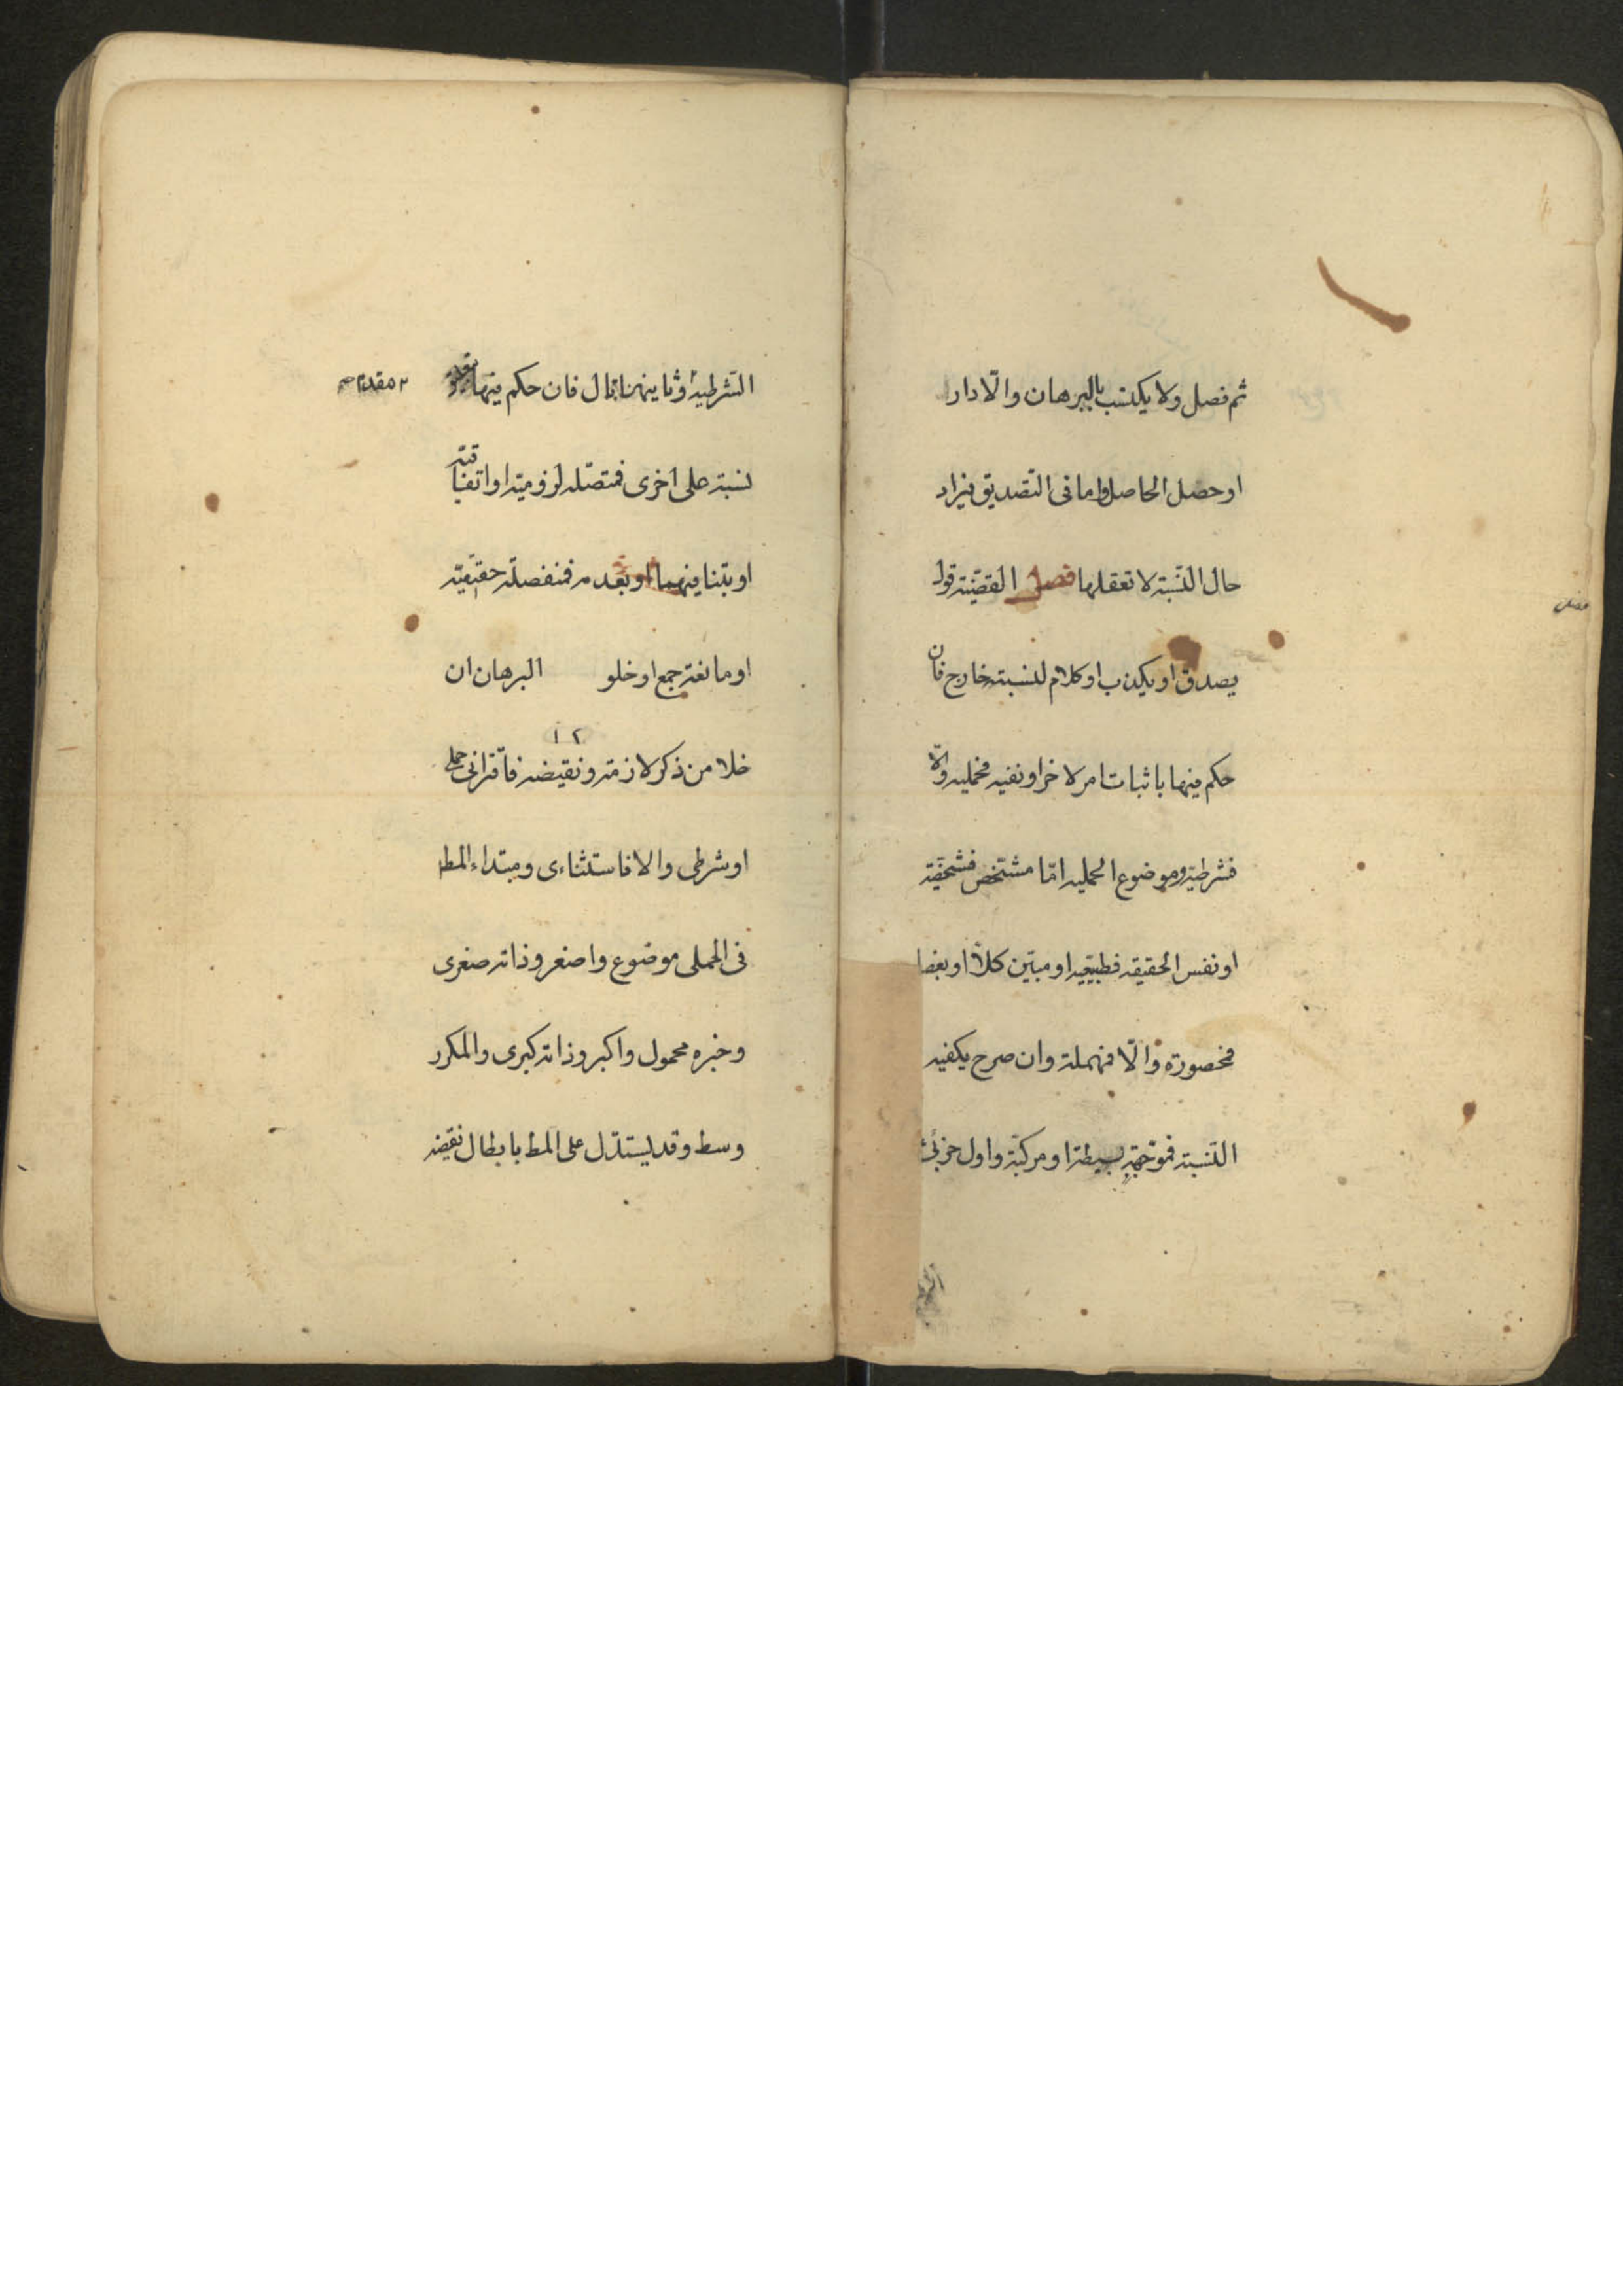 ثم فصل ولا يكتسب بالبرهان والّا دار
او حصل الحاصل واما فى التصديق فيزاد
حال النسبة لا تعقلها فصل القضيّة قول
يصدق او يكذب او كلام لنسبته خارج فان
حكم فيها باثبات امر لاخر او نفيه فحمليه والّا
فشرطيه وموضوع الحمليه امّا مشخص فشخصيّة
او نفس الحقيقه فطبيعيه او مبيّن كلاّ او بعضا
فمحصورة والّا فمهملة وان صرح بكيفيه
النسبة فموجّهة بسيطة او مركبّة واول جزئى
الشرطية وثانيهما تال فان حكم فيها
مقدم صح
نسبة على اخرى فمتصّله لزوميّه او اتفاقيّه
او بتنافيهما او بعدمه فمنفصلة حقيقيّه
او مانعة جمع او خلو البرهان ان
١٢
خلا من ذكر لازمه ونقيضه فاقترانى حملى
او شرطى والا فاستثناءى ومبتداء المط
فى الحملى موضوع واصغر وذاته صغرى
وخبره محمول واكبر وذاته كبرى والمكرر
وسط وقد يستدّل على المط بابطال نقيضه